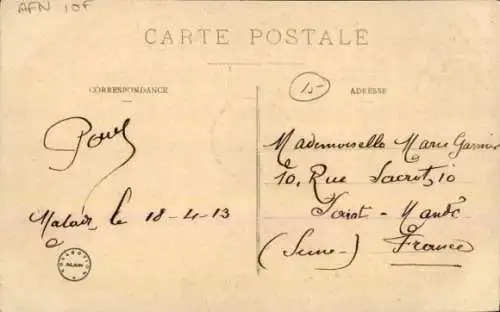 AFN 10F
CARTE POSTALE
CORRESPONDANCE
ADRESSE
15-
Paul
le 18-4-13
Mademoiselle Marie Garnier
10, Rue Sacrot, 10
Saint-Mandé
(Seine-) France
COLLECTION